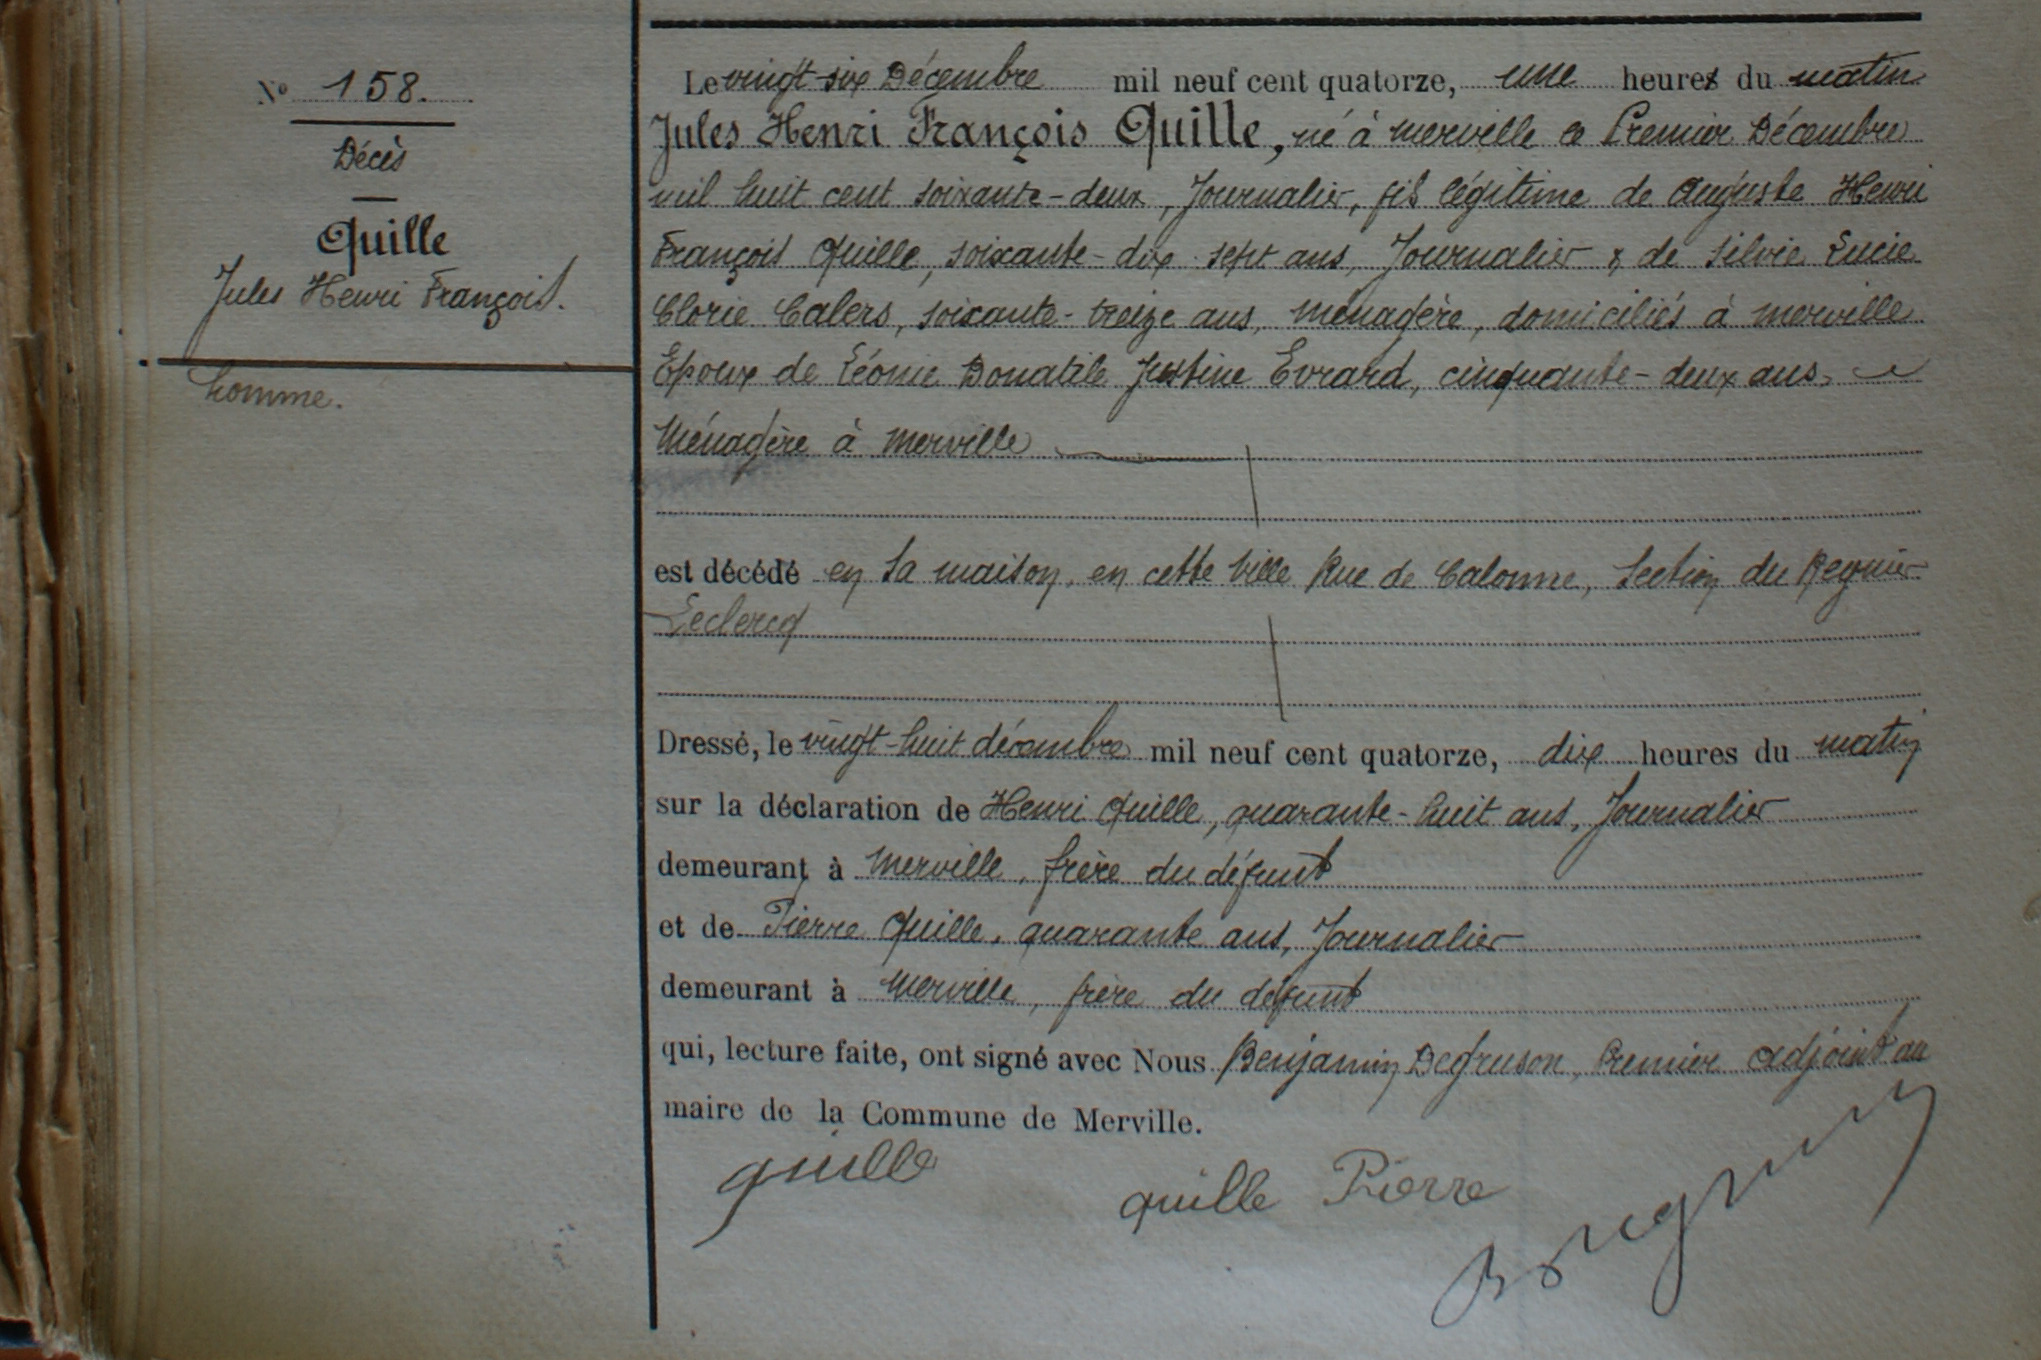 N° 158.
Décès
Quille
Jules Henri François.
homme.
Le vingt-six Décembre mil neuf cent quatorze, une heures du matin
Jules Henri François Quille, né à Merville le Premier Décembre
mil huit cent soixante-deux, Journalier, fils légitime de Auguste Henri
François Quille, soixante-dix-sept ans, Journalier & de Silvie Lucie
Clorie Calers, soixante-treize ans, ménagère, domiciliés à Merville
Epoux de Léonie Donatile Justine Evrard, cinquante-deux ans,
Ménagère à Merville
est décédé en sa maison, en cette ville Rue de Calonne, Section du Regnier
Leclercq
Dressé, le vingt-huit décembre mil neuf cent quatorze, dix heures du matin
sur la déclaration de Henri Quille, quarante-huit ans, Journalier
demeurant à Merville, frère du défunt
et de Pierre Quille, quarante ans, Journalier
demeurant à Merville, frère du défunt
qui, lecture faite, ont signé avec Nous Benjamin Degruson, Premier adjoint au
maire de la Commune de Merville.
quille
quille Pierre